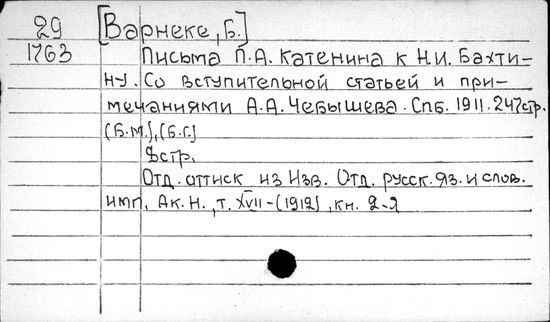 29 [Варнеке, Б.]
1763 Письма П.А. Катенина к Н.И. Бахти-
ну. Со вступительной статьей и при-
мечаниями А.А. Чебышева. Спб. 1911. 247стр.
(Б.м.), (Б.г.)
8стр.
Отд. оттиск из Изв. Отд. русск. яз. и слов.
имп. Ак. Н., т. XVII-(1912), кн. 2-я